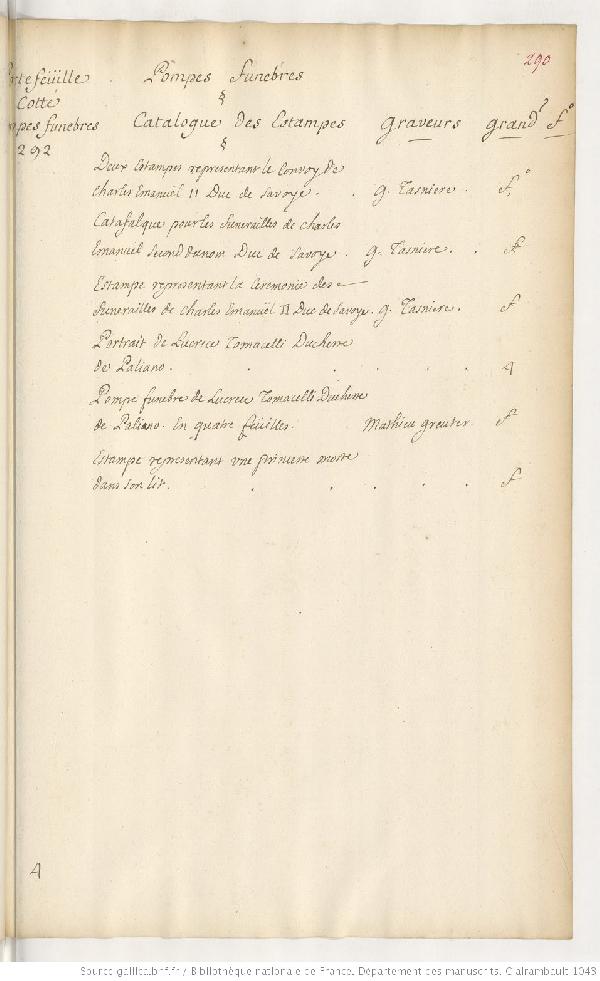 290
rtefeüille . Pompes funebres
§
Cotté
mpes funebres Catalogue des Estampes graveurs grandr fo
292 §
Deux Estampes representant le Convoy de
Charles Emanuël II Duc de Savoye . . g. Tasniere . fo
Catafalque pour les funerailles de Charles
Emanuël Second du nom Duc de Savoye . g. Tasniere . . f
Estampe representant la Ceremonie des
funerailles de Charles Emanuël II Duc de Savoye . g. Tasniere . f
Portrait de Lucrece Tomacelli Duchesse
de Paliano . . . . . . 4
Pompe funebre de Lucrece Tomacelli Duchesse
de Paliano . En quatre feüilles . Mathieu greuter . f
Estampe representant vne princesse morte
dans son lit . . . . . . f
4
Source gallica.bnf.fr / Bibliothèque nationale de France. Département des manuscrits. Clairambault 1043